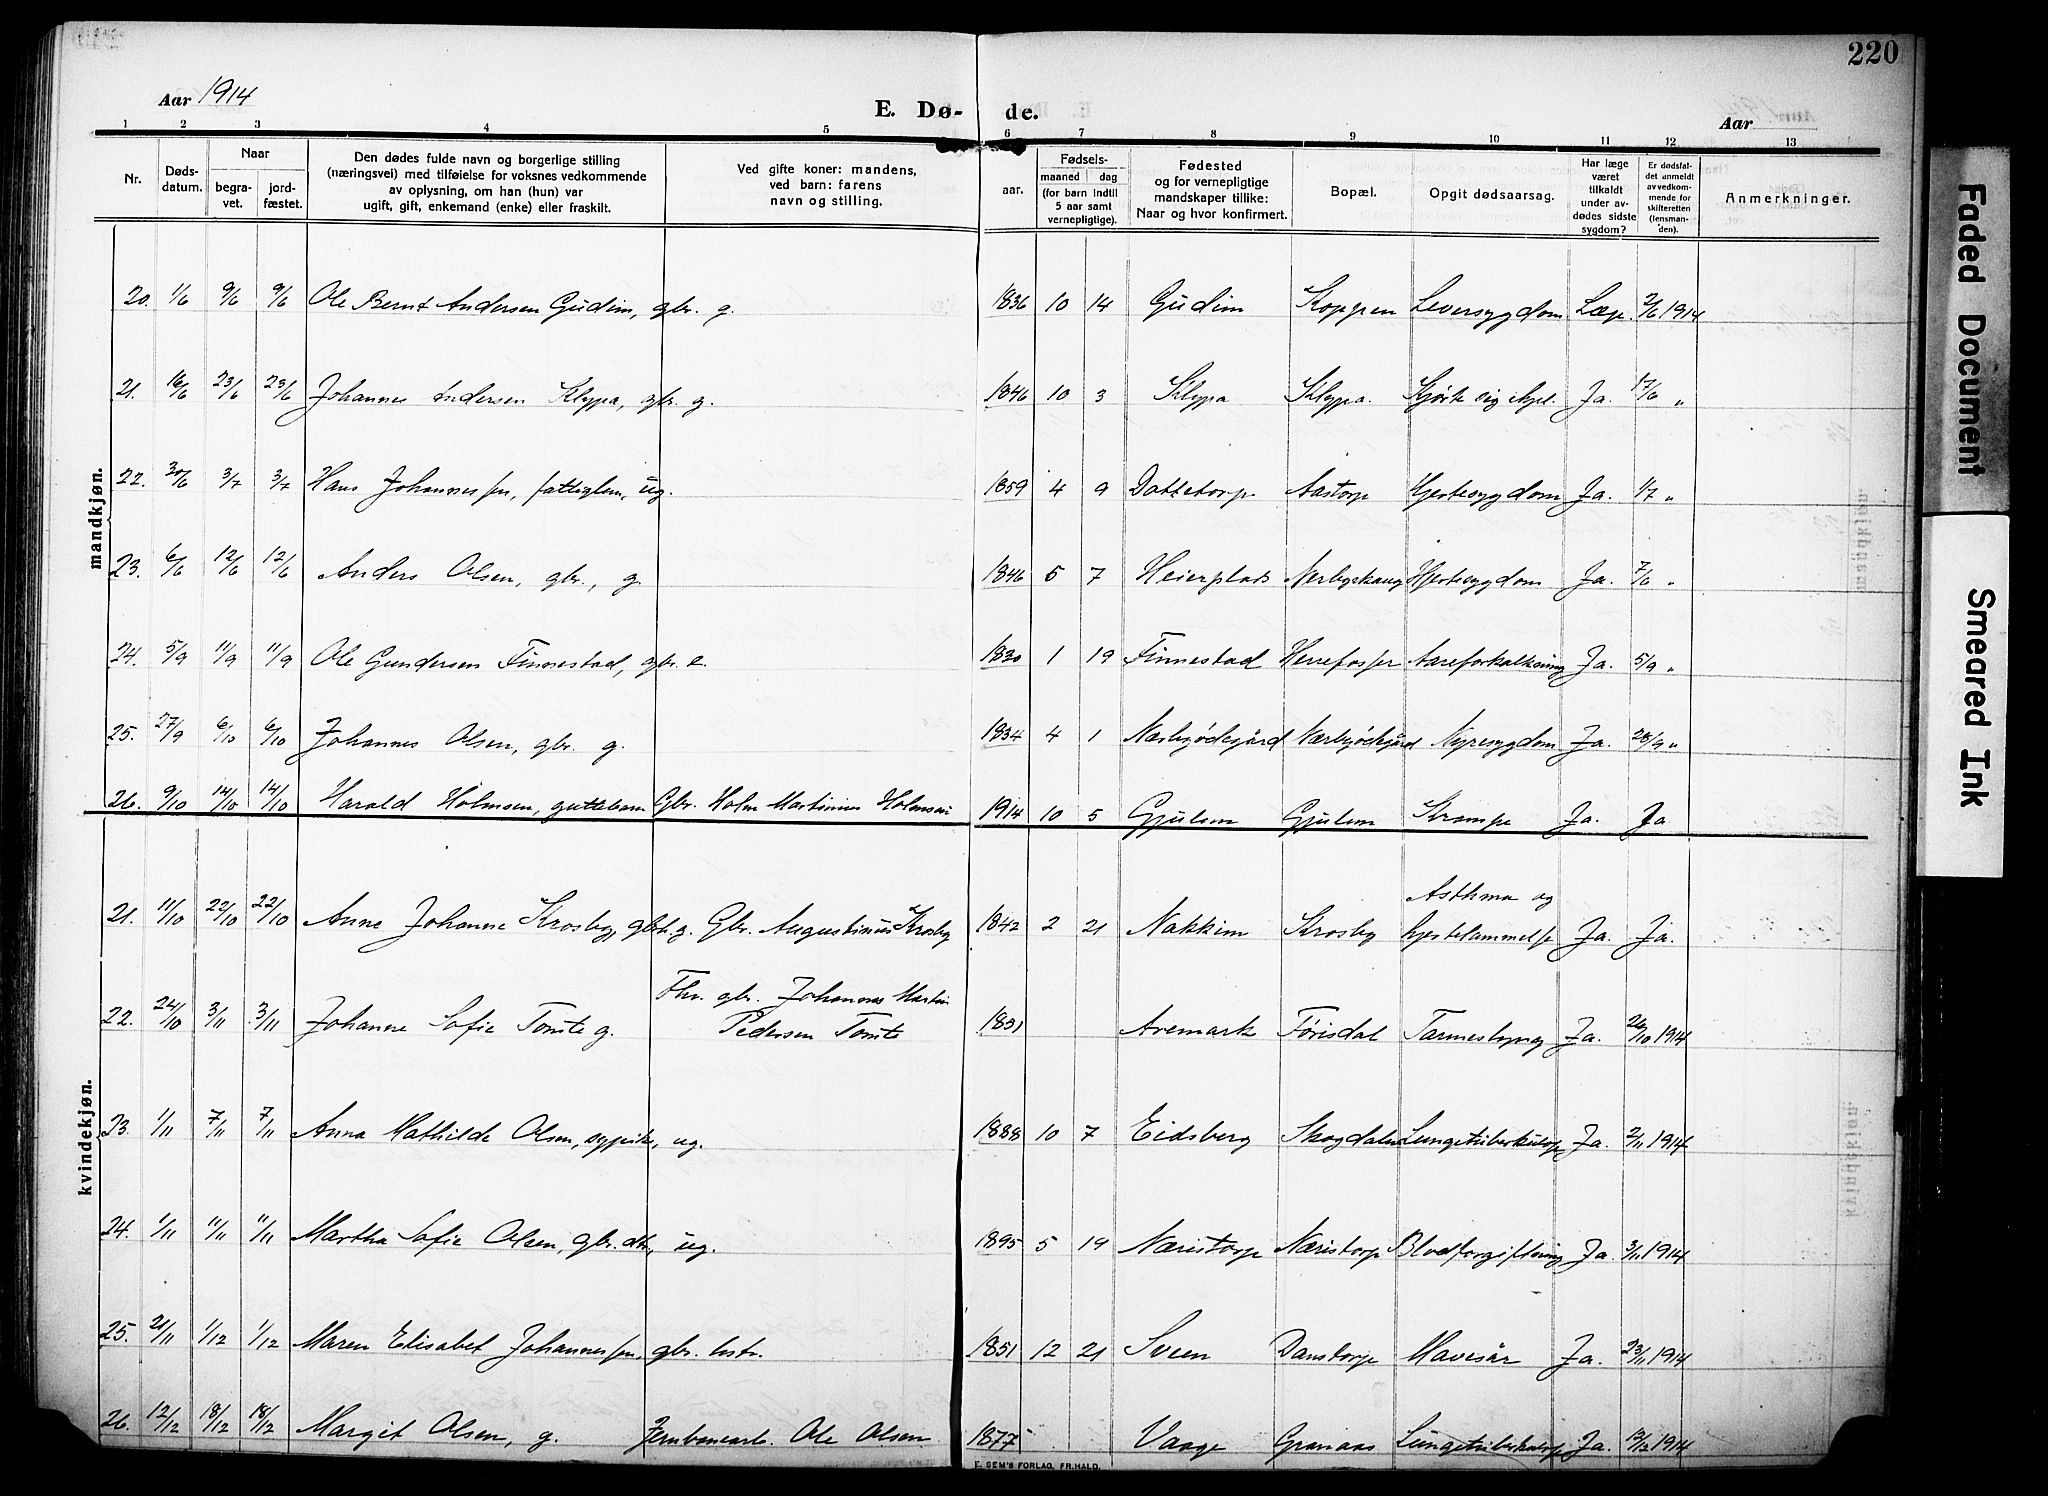 220
Aar 1914
E. Dø- de.
Aar
1 2 3 4 5 6 7 8 9 10 11 12 13
Nr.
Døds-
datum.
Naar
begra-
vet.
jord-
fæstet.
Den dødes fulde navn og borgerlige stilling
(næringsvei) med tilføielse for voksnes vedkommende
av oplysning, om han (hun) var
ugift, gift, enkemand (enke) eller fraskilt.
Ved gifte koner: mandens,
ved barn: farens
navn og stilling.
aar.
Fødsels-
maaned dag
(for barn indtil
5 aar samt
vernepligtige).
Fødested
og for vernepligtige
mandskaper tillike:
Naar og hvor konfirmert.
Bopæl.
Opgit dødsaarsag.
Har læge
været
tilkaldt
under av-
dødes sidste
sygdom?
Er dødsfal-
det anmeldt
av vedkom-
mende for
skifteretten
(lensman-
den).
Anmerkninger.
mandkjøn.
20. 1/6 9/6 9/6 Ole Bernt Andersen Gudim, gbr. g. 1836 10 14 Gudim Koppen Leversygdom Læge. 2/6 1914
21. 16/6 23/6 23/6 Johannes Andersen Klypa, gbr. g. 1846 10 3 Klypa Klypa. Skjørte sig ihjel. Ja. 17/6 "
22. 30/6 3/7 3/7 Hans Johannessen, fattiglem, ug. 1859 4 9 Dattetorp Aastorp Hjertesygdom Ja. 1/7 "
23. 6/6 12/6 12/6 Anders Olsen, gbr., g. 1846 5 7 Heierplads Nerbyskaug Hjertesygdom Ja. 7/6 "
24. 5/9 11/9 11/9 Ole Gundersen Finnestad, gbr. e. 1830 1 19 Finnestad Herrefosser Aareforkalkning Ja. 5/9 "
25. 27/9 6/10 6/10 Johannes Olsen, gbr. g. 1834 4 1 Nærbyødegård Nærbyødegård Nyresygdom Ja. 28/9 "
26. 9/10 14/10 14/10 Harald Holmsen, guttebarn Gbr. Holm Martinius Holmsen 1914 10 5 Gjulem Gjulem Krampe Ja. Ja
kvindekjøn.
Asthma og
21. 11/10 22/10 22/10 Anne Johanne Krosby, gbk. g. Gbr. Augustinius Krosby 1842 2 21 Nakkim Krosby hjertelammelse Ja. Ja.
Fhv. gbr. Johannes Martin
22. 24/10 3/11 3/11 Johanne Sofie Tomte g. Pedersen Tomte 1851 Aremark Førisdal Tarmeslyng Ja. 26/10 1914
23. 1/11 7/11 7/11 Anna Mathilde Olsen, sypike, ug. 1888 10 7 Eidsberg Skogdalen Lungetuberkulose Ja. 2/11 1914
24. 1/11 11/11 11/11 Martha Sofie Olsen, gbr. dtr., ug. 1895 5 19 Næristorp Næristorp Blodforgiftning Ja. 3/11 1914
25. 21/11 1/12 1/12 Maren Elisabet Johannessen, gbr. hstr. 1851 12 21 Sveen Danstorp Mavesår Ja. 23/11 1914
26. 12/12 18/12 18/12 Margit Olsen, g. Jernbanearb. Ole Olsen 1877 Vaage Granaas Lungetuberkulose Ja. 1914
E. SEM'S FORLAG, FR.HALD.
Faded Document
Smeared Ink